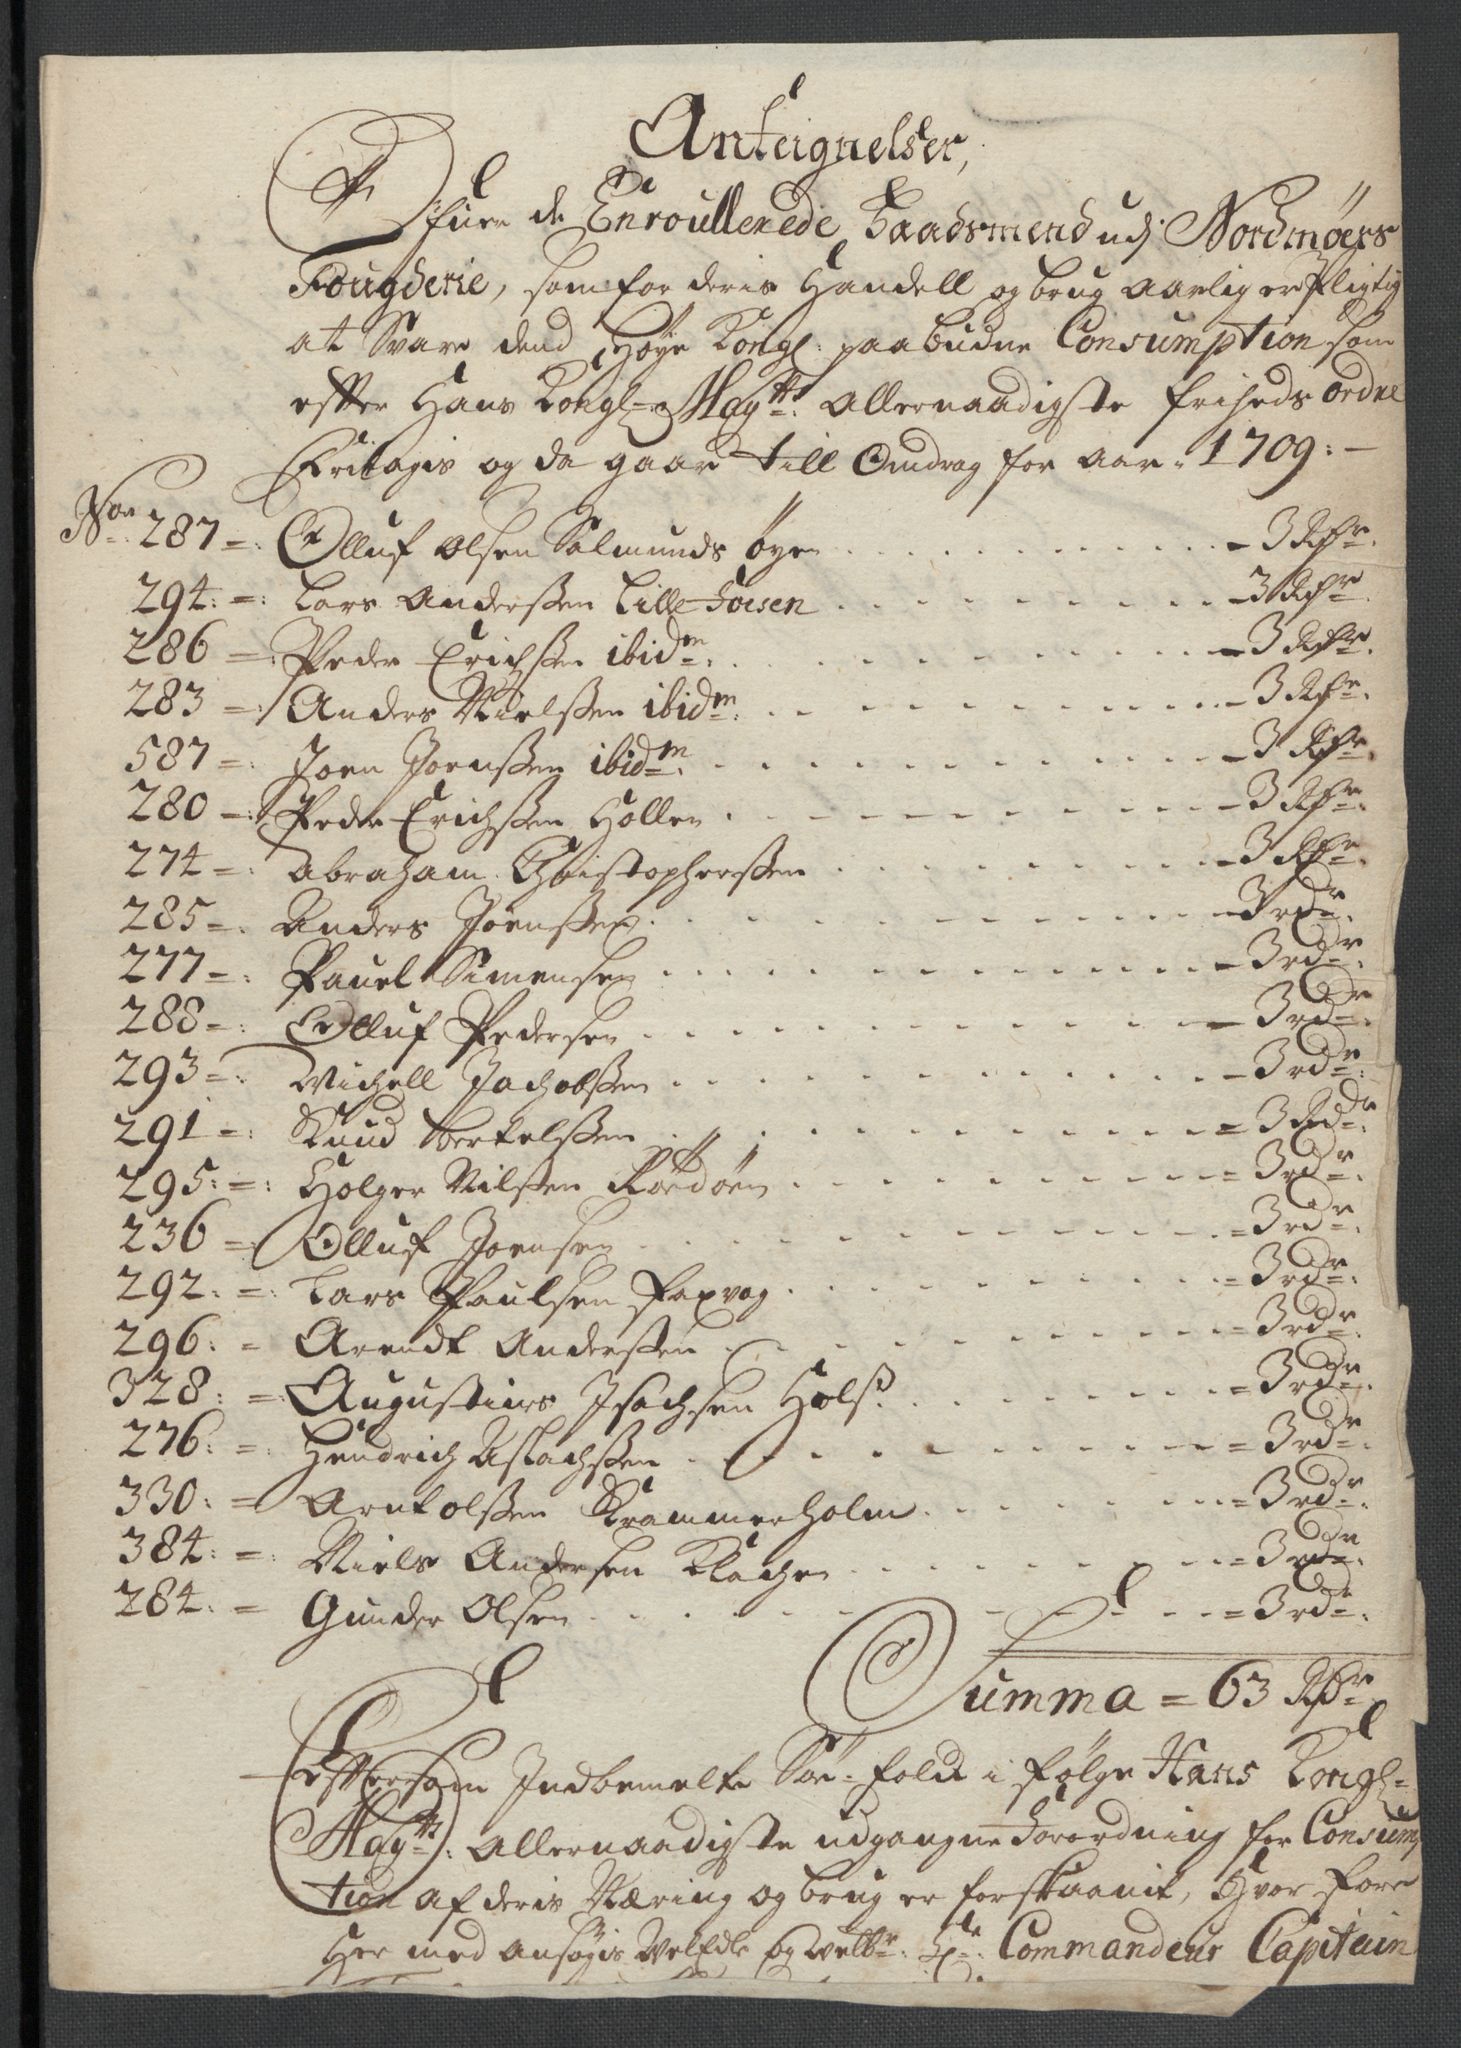 Anteignelser,
Ofuer de Enroullerede Baadsmend udj Nordmøers
Fougderie, som for deris Handell og brug aarlig er Pligtig
at Svare dend Høye Kongl: paabudne Consumption som
efter Hans Kongl: Mayts: allernaadigste friheds ordre
Fritagis og da gaar till Omdrag for aar: 1709:
No: 287 =: Olluf Olsen Salmunds öyen - 3 Rdr.
294: =: Lars Anderssen Lille Fosen - 3 Rdr.
286 =: Peder Erichssen ibidm: - 3 Rdr.
283 =: Anders Nielssen ibidm: - 3 Rdr.
587 =: Joen Joenssen ibidm: - 3 Rdr.
280 =: Peder Erichssen Hollen - 3 Rdr.
274 =: Abraham Christopherssen - 3 Rdr.
285 =: Anders Joenssen - 3 rdr.
277 =: Pauel Simensen - 3 rdr.
288 =: Olluf Pedersen - 3 rdr.
293 =: Michell Jachobssen - 3 rdr.
291 =: Knud Berkelssen = 3 Rdr.
295: =: Holger Nilssen Röedöen = 3 rdr.
236 =: Olluf Joensen = 3 rdr.
292: =: Lars Paulsen Faxvog = 3 rdr.
296: = Arendt Anderssen = 3 rdr.
328: =: Augustinus Isachsen Hols: = 3 rdr.
276: =: Hendrich Aslachssen = 3 rdr.
330: = Arnt olssen Krammerholm = 3 rdr.
384: =: Niels Andersen Klachen = 3 rdr.
284: = Gunder Olsen = 3 rdr.
Summa = 63 Rdr
Eftersom Indbemelte Söe-folck i følge Hans Kongl-
Mayts: allernaadigste udgangne Forordning for Consump
tion af deris Næring og brug er forskaanit, Hvor fore
Her med ansøgis VelEdle og Velbr: Hr: Commandeur Capitain